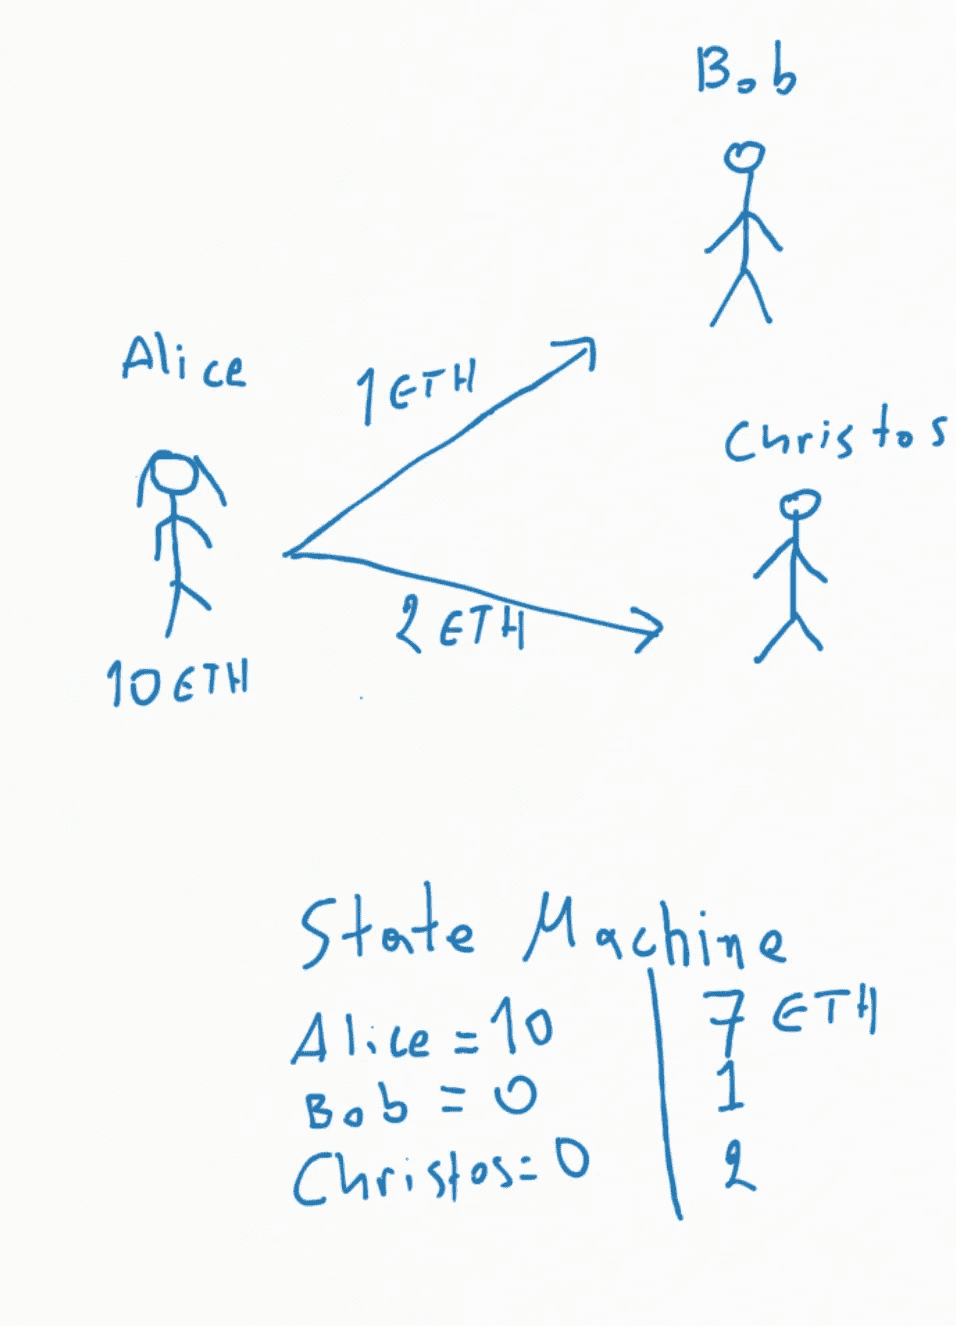 Bob
Alice
1 ETH
Christos
2 ETH
10 ETH
State Machine
Alice = 10 | 7 ETH
Bob = 0 | 1
Christos = 0 | 2